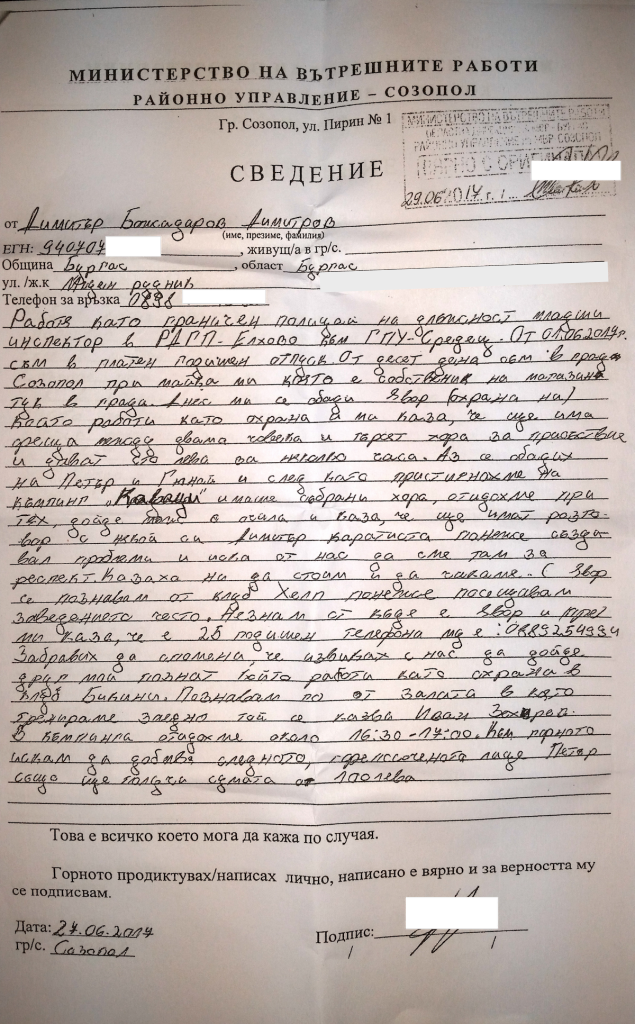 МИНИСТЕРСТВО НА ВЪТРЕШНИТЕ РАБОТИ
РАЙОННО УПРАВЛЕНИЕ – СОЗОПОЛ
Гр. Созопол, ул. Пирин № 1
МИНИСТЕРСТВО НА ВЪТРЕШНИТЕ РАБОТИ
РАЙОННО УПРАВЛЕНИЕ СОЗОПОЛ
ВЯРНО С
29.06.2017 г.
СВЕДЕНИЕ
от Димитър Божидаров Димитров
(име, презиме, фамилия)
ЕГН: 940707 , живущ/а в гр/с.
Община Бургас , област Бургас
ул. /ж.к Меден рудник
Телефон за връзка 0898
Работя като граничен полицай на длъжност младши
инспектор в РДГП-Елхово към ГПУ-Средец. От 01.06.2017г.
съм в платен годишен отпуск От десет дена съм в град
Созопол при майка ми която е собственик на магазина
тук в града. Днес ми се обади Явор (охрана на)
който работи като охрана и ми каза, че ще има
среща между двама човека и търсят хора за присъствие
и дават сто лева за няколко часа. Аз се обадих
на Петър и и след като пристигнахме на
къмпинг „Каваци" имаше събрани хора, отидохме при
тях, дойде с очила и каза, че ще имат разго-
вор с някой си Димитър каратиста понеже създа-
вал проблеми и иска от нас да сме там за
респект. Казаха ни да стоим и да чакаме. ( Явор
се познавам от клуб Хелп понеже посещавам
заведението често. Незнам от къде е Явор и
ми каза, че е 25 годишен телефона му е:
Забравих да спомена, че извиках с нас да дойде
друг мой познат който работи като охрана в
клуб Бикини. Познавам го от залата в която
тренираме заедно той се казва Иван
В къмпинга отидохме около 16:30-17:00. Към горното
искам да добавя следното, горепосоченото лице Петър
също ще получи сумата от 100 лева
Това е всичко което мога да кажа по случая.
Горното продиктувах/написах лично, написано е вярно и за верността му
се подписвам.
Дата: 27.06.2017
гр/с. Созопол
Подпис: